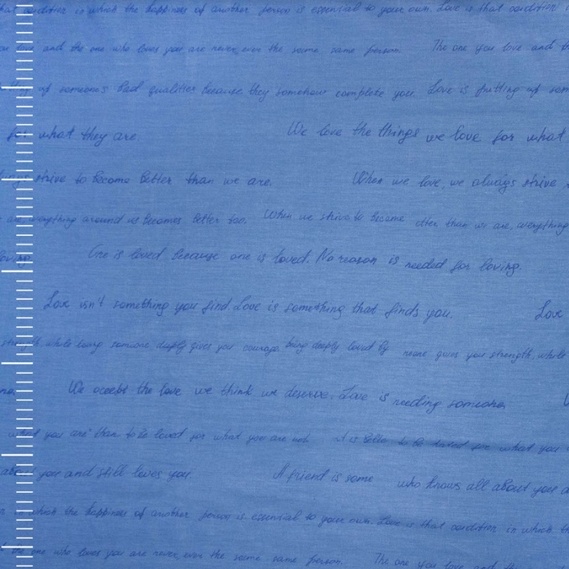 that condition in which the happiness of another person is essential to your own. Love is that condition
love and the one who loves you are never, ever the same same person. The one you love and
of someone's bad qualities because they somehow complete you. Love is putting up
for what they are. We love the things we love for what
strive to become better than we are. When we love, we always strive
everything around us becomes better too. When we strive to become etter than we are, everything
loving. One is loved because one is loved. No reason is needed for loving.
Love isn't something you find. Love is something that finds you. Love
strength, while loving someone deeply gives you courage. Being deeply loved by meone gives you strength, while
We accept the love we think we deserve. Love is needing someone
what you are than to be loved for what you are not. It is better to be hated for what you
about you and still loves you A friend is some who knows all about you
in which the happiness of another person is essential to your own. Love is that condition in which
one who loves you are never, ever the same same person. The one you love and the